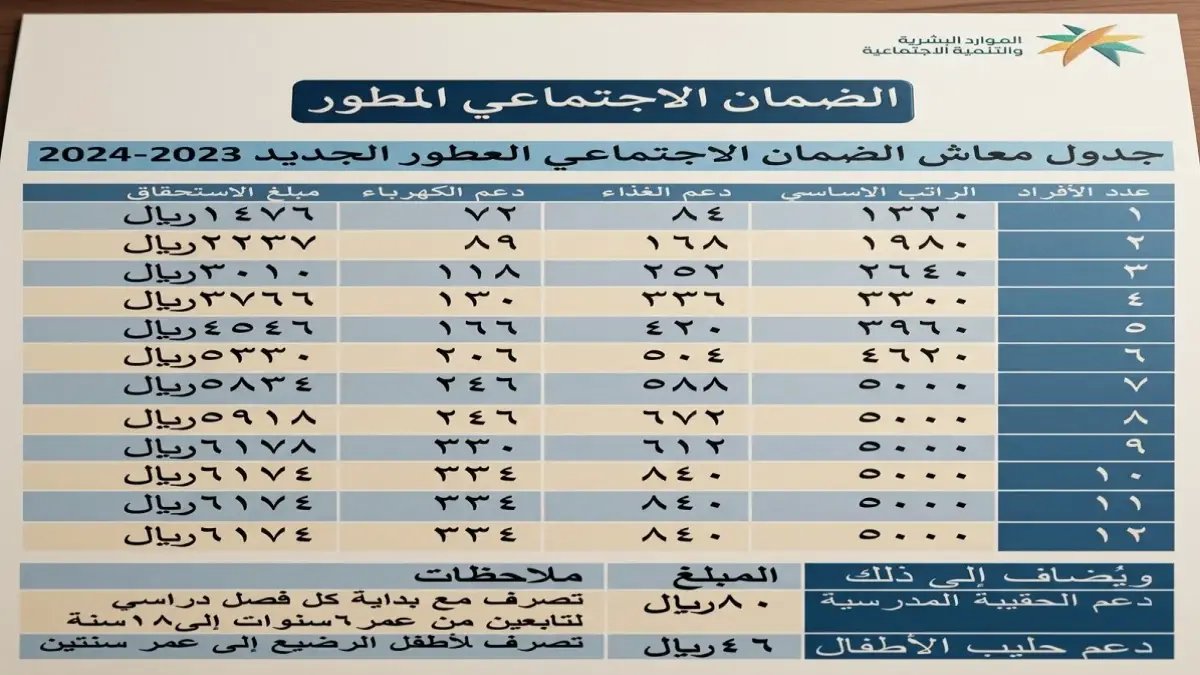 الموارد البشرية
والتنمية الاجتماعية
الضمان الاجتماعي المطور
جدول معاش الضمان الاجتماعي العطور الجديد 2023-2024
عدد الأفراد الراتب الاساسي دعم الغذاء دعم الكهرباء مبلغ الاستحقاق
١ ١٣٢٠ ٨٤ ٧٢ ١٤٧٦ريال
٢ ١٩٨٠ ١٦٨ ٨٩ ٢٢٣٧ريال
٣ ٢٦٤٠ ٢٥٢ ١١٨ ٣٠١٠ريال
٤ ٣٣٠٠ ٣٣٦ ١٣٠ ٣٧٦٦ريال
٥ ٣٩٦٠ ٤٢٠ ١٦٦ ٤٥٤٦ريال
٦ ٤٦٢٠ ٥٠٤ ٢٠٦ ٥٣٣٠ريال
٧ ٥٠٠٠ ٥٨٨ ٢٤٦ ٥٨٣٤ريال
٨ ٥٠٠٠ ٦٧٢ ٢٤٦ ٥٩١٨ريال
٩ ٥٠٠٠ ٦١٢ ٣٣٠ ٦١٧٨ريال
١٠ ٥٠٠٠ ٨٤٠ ٣٣٤ ٦١٧٤ريال
١١ ٥٠٠٠ ٨٤٠ ٣٣٤ ٦١٧٤ريال
١٢ ٥٠٠٠ ٨٤٠ ٣٣٤ ٦١٧٤ريال
ويُضاف إلى ذلك المبلغ ملاحظات
دعم الحقيبة المدرسية ٨٠ريال تصرف مع بداية كل فصل دراسي
لتابعين من عمر٦سنوات إلى١٨سنة
دعم حليب الأطفال ٤٦ريال تصرف لأطفل الرضيع إلى عمر سنتين